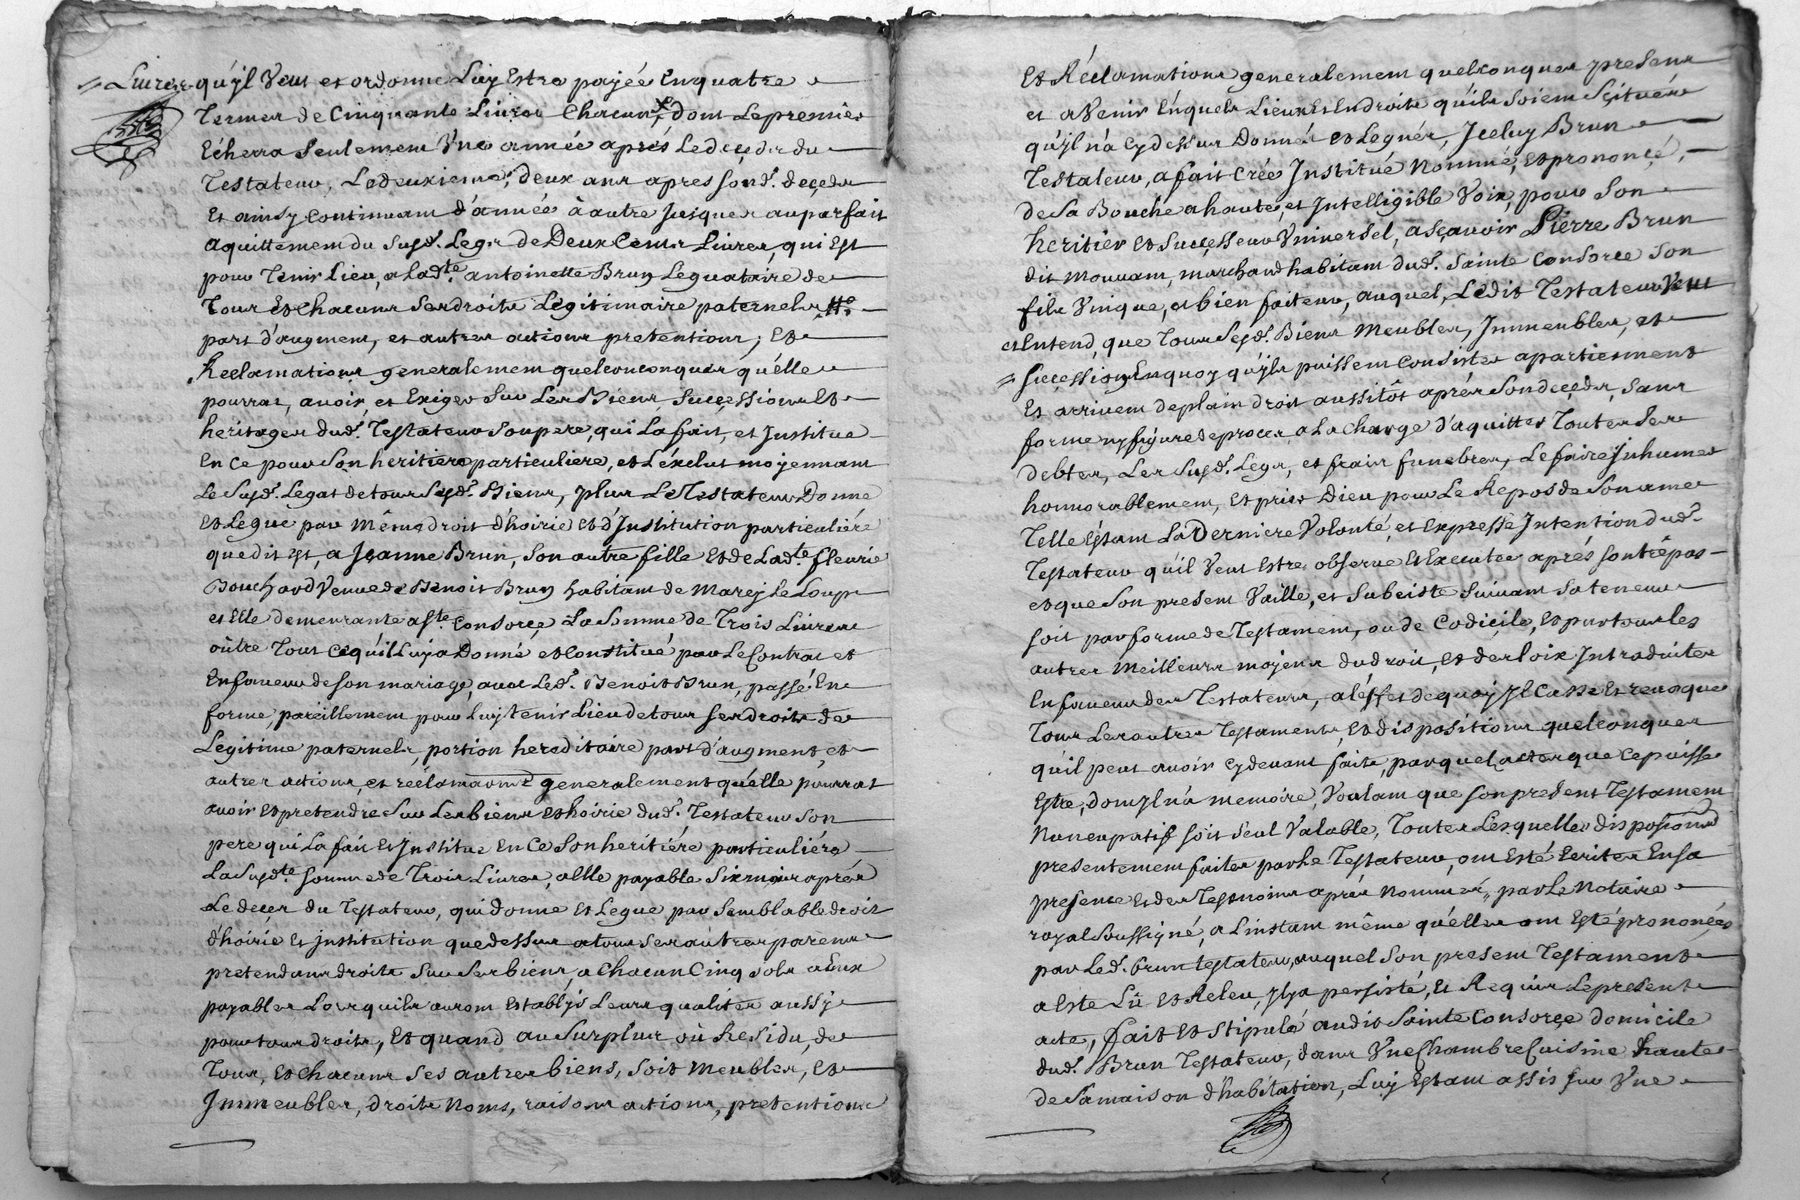 Livres qu'jl Veut et ordonne Luy Estre payée Enquatre
Termes de Cinquante Livres Chacun, dont Lepremier
Echerra Seulement Vne année aprés Ledeçeds du
Testateur, Ledeuxieme, deux ans apres sond. deçeds
Et ainsy Continuant d'année à autre Jusques auparfait
aquittement du Susd. Legs de Deux Cents Livres, qui Est
pour Tenir Lieu, a Ladte. antoinette Brun Legataire de
Tous Et Chacuns Sesdroits Legitimaire paternels
part d'augment, et autres actions pretentions, Et
Reclamations generalement quelconconques qu'elle
pourras, avoir et Exiger Sur Les Biens Successions Et
heritages dud. Testateur Sonpere, qui La fait, et Jnstitue
En Ce pour Son heritiere particuliere, et L'éxclut moyennant
Le Susd. Legat detous Sesd. Biens, plus Le Testateur Donne
Et Legue par Même droit d'hoirie Et d'Jnstitution particuliére
que dit est, a Jeanne Brun, Son autre fille Et de Ladte. fleurie
Bouchard Veuve de Benoit Brun habitant de Marcy Le Loup
et Elle demeurante a Ste. Consorçe La Somme de Trois Livres
oûtre Tout Cequ'il Luy a Donné et Constitué par Le Contrat et
Enfaveur de son mariage, avec Led. Benoit Brun, passé En
forme, pareillement pour Luy tenir Lieu detous sesdroits de
Legitime paternels, portion hereditaire part d'augment, et
autres actions, et réclamaons generalement qu'elle pourrat
avoir Et pretendre Sur Les biens Et hoirie dud. Testateur Son
pere qui La fait Et Jnstitue En Ce Son heritiére particuliére
La Susdte. Somme de Trois Livres, a Elle payable Sixmois aprés
Le deçes du Testateur, qui donne Et Legue par Semblable droit
d'hoirie Et jnstitution que dessus a tous Ses autres parens
pretendans droits Sur Ses biens, a Chacun Cinq sols a Eux
payables Lorsquils auront Establys Leurs qualités aussy
pour tous droits, Et quand au Surplus où Residu, de
Tous, Et Chacuns Ses autres biens, soit Meubles, Et
Jmmeubles, droits Noms, raisons actions, pretentions
Et Réclamations generalement quelconques presens
et aVenir Enquels Lieux Et Endroits qu'ils soient Scituéz
qu'jl n'a Cy dessus Donnés et Legués, Jceluy Brun
Testateur, a fait Créé Jnstitué Nommé, et prononcé,
de Sa Bouche a haute, et Jntelligible Voix, pour Son
heritier et Successeur Vniversel, a sçavoir Pierre Brun
dit Mouvant, marchand habitant dud. Sainte Consorce Son
fils Vnique, et bien faiteur, auquel, Ledit Testateur Veut
et Entend, que Tous Sesd. Biens Meubles, Jmmeubles, et
succession, Enquoy qu'jls puissent Consister apartiennent
Et arrivent deplain droit aussitôt aprés Sondeçeds, Sans
forme ny figure deproces, a La Charge d'aquitter Toutes Ses
debtes, Les Susd. Legs, et frais funebres, Le faire Jnhumer
honnorablement, Et prier Dieu pour Le Repos de Son ame
Telle Estant La Derniere Volonté, et Expresse Jntention dud.
Testateur qu'il Veut Estre observé Et Executée aprés son trépas
et que Son present Vaille, et Subciste Suivant Sa teneur
soit par forme de Testament, ou de Codiçile, Et par tous les
autres Meilleurs moyens du droit, Et des loix Jntroduites
En faveur des Testateurs, a l'éffet dequoy Jl Casse Et revoque
Tous Les autres Testaments, Et dispositions quelconques
qu'il peut avoir Cy devant faits, par quel actes que Ce puisse
Estre, dont Jl n'a memoire, Voulant que son present Testament
Nuncupatif soit Seul Valable, Toutes Lesquelles dispositions
presentement faites par Le Testateur, ont Esté Ecrites En sa
presence Et des Tesmoins aprés Nommés, par Le Notaire
royal Soussigné, a L'instant même qu'elles ont Esté prononcées
par Led. brun testateur, auquel Son present Testament
a Este Lû et Releu, Jl ya persisté, Et Requis Le present
acte, fait Et Stipulé audit Sainte Consorçe domicile
dud. Brun Testateur, dans Vne Chambre Cuisine haute
de Sa maison d'habitation, Luy Estant assis sur Vne